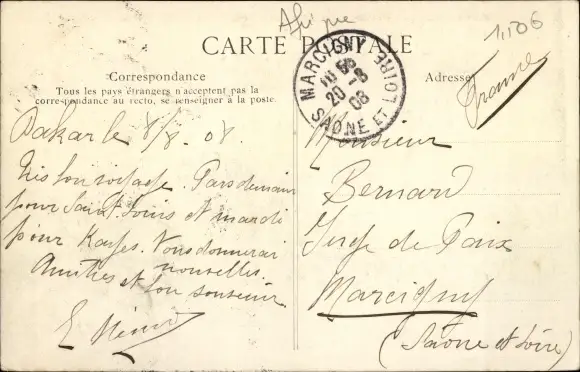 Afrique
1,506
CARTE POSTALE
Correspondance
Tous les pays étrangers n'acceptent pas la
correspondance au recto, se renseigner à la poste.
Adresse
MARCIGNY
20 - 8
08
SAÔNE ET LOIRE
France
Dakar le 8/8. 08.
Très bon voyage. Pars demain
pour Saint Louis et mardi
pour Kayes. Vous donnerai
nouvelles.
Amitiés et bon souvenir
E
Monsieur
Bernard
Juge de Paix
Marcigny
(Saône et Loire)